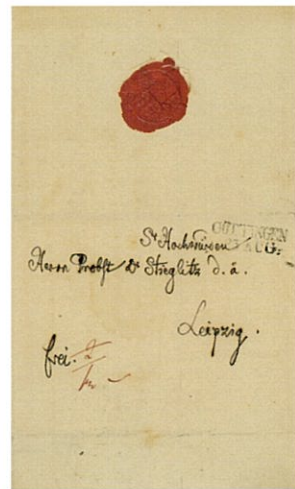 GÖTTINGEN
AUG.
Sr Hochwürden
Herrn Probst Dr Stieglitz d. ä.
Leipzig.
frei.